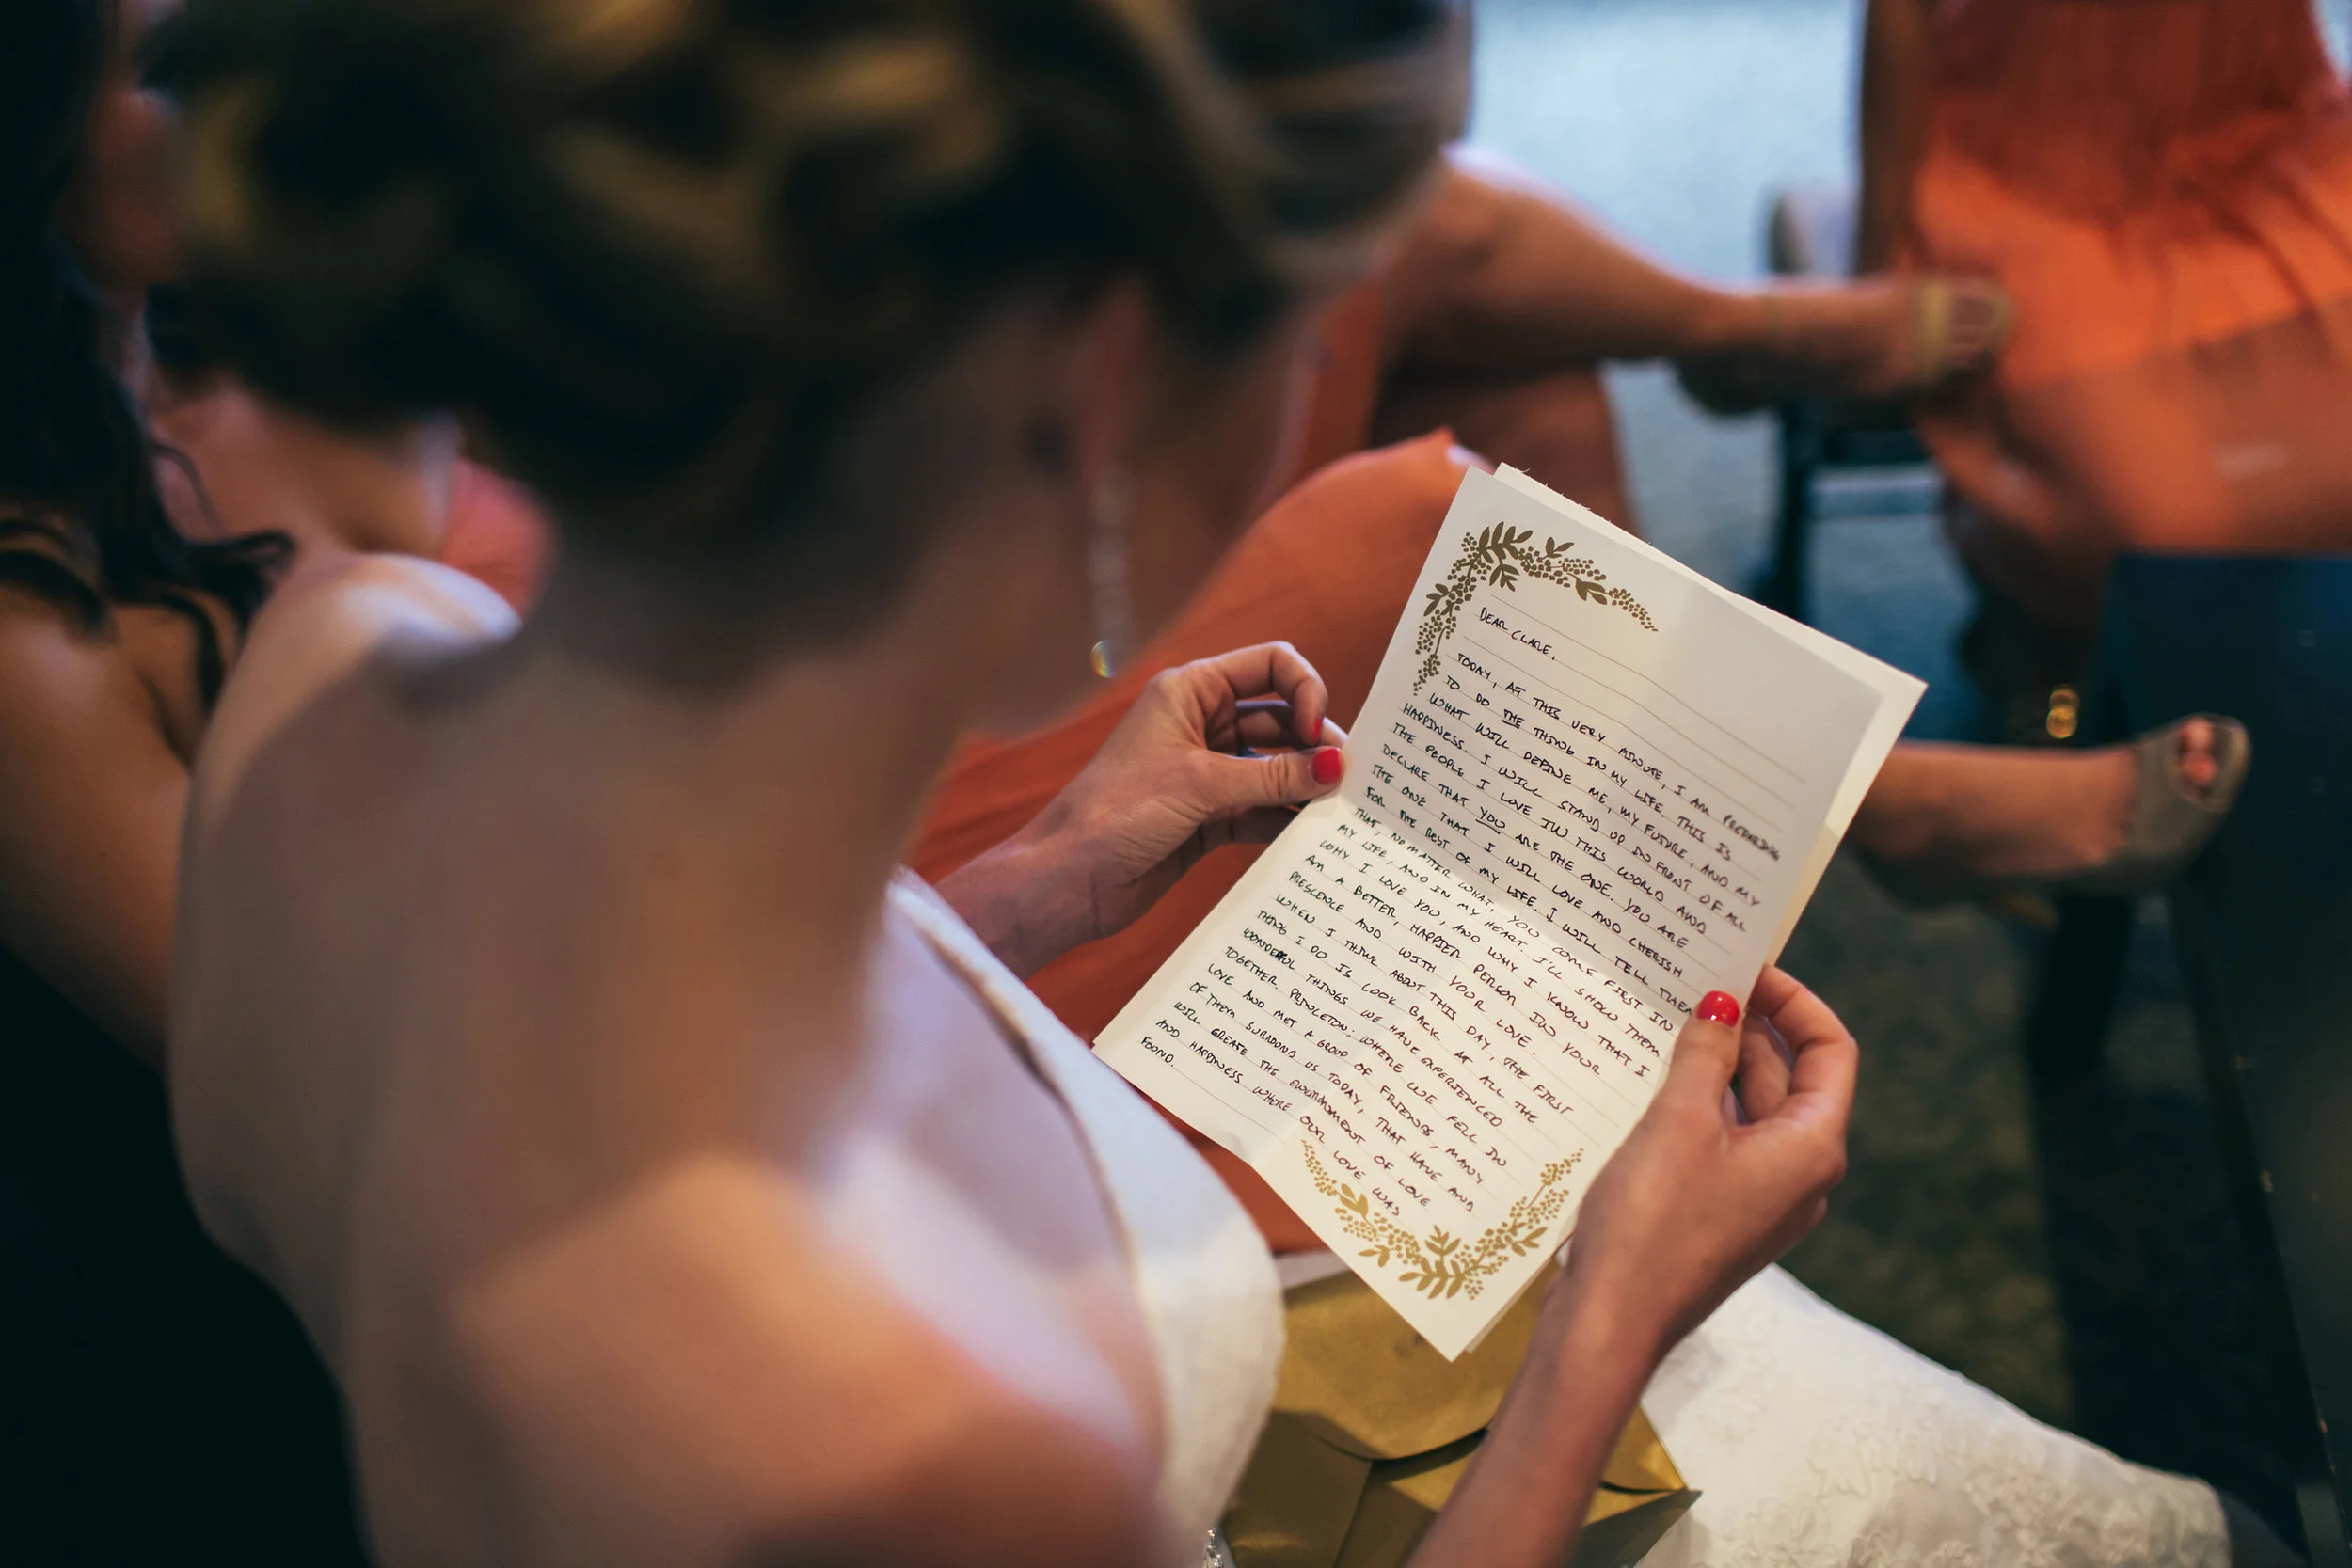 DEAR CLARE,
TODAY, AT THIS VERY MINUTE, I AM PREPARING
TO DO THE THING IN MY LIFE. THIS IS
WHAT WILL DEFINE ME, MY FUTURE, AND MY
HAPPINESS. I WILL STAND UP IN FRONT OF ALL
THE PEOPLE I LOVE IN THIS WORLD AND
DECLARE THAT YOU ARE THE ONE. YOU ARE
THE ONE THAT I WILL LOVE AND CHERISH
FOR THE REST OF MY LIFE. I WILL TELL THEM
THAT, NO MATTER WHAT, YOU COME FIRST IN
MY LIFE, AND IN MY HEART. I'LL SHOW THEM
WHY I LOVE YOU, AND WHY I KNOW THAT I
AM A BETTER, HAPPIER PERSON IN YOUR
PRESCENCE AND WITH YOUR LOVE.
WHEN I THINK ABOUT THIS DAY, THE FIRST
THING I DO IS LOOK BACK AT ALL THE
WONDERFUL THINGS WE HAVE EXPERIENCED
TOGETHER. PRINCETON; WHERE WE FELL IN
LOVE AND MET A GROUP OF FRIENDS, MANY
OF THEM SURROUND US TODAY, THAT HAVE AND
WILL CREATE THE ENVIRONMENT OF LOVE
AND HAPPINESS WHERE OUR LOVE WAS
FOUND.